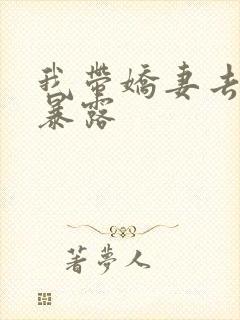 我带娇妻去
暴露
著梦人